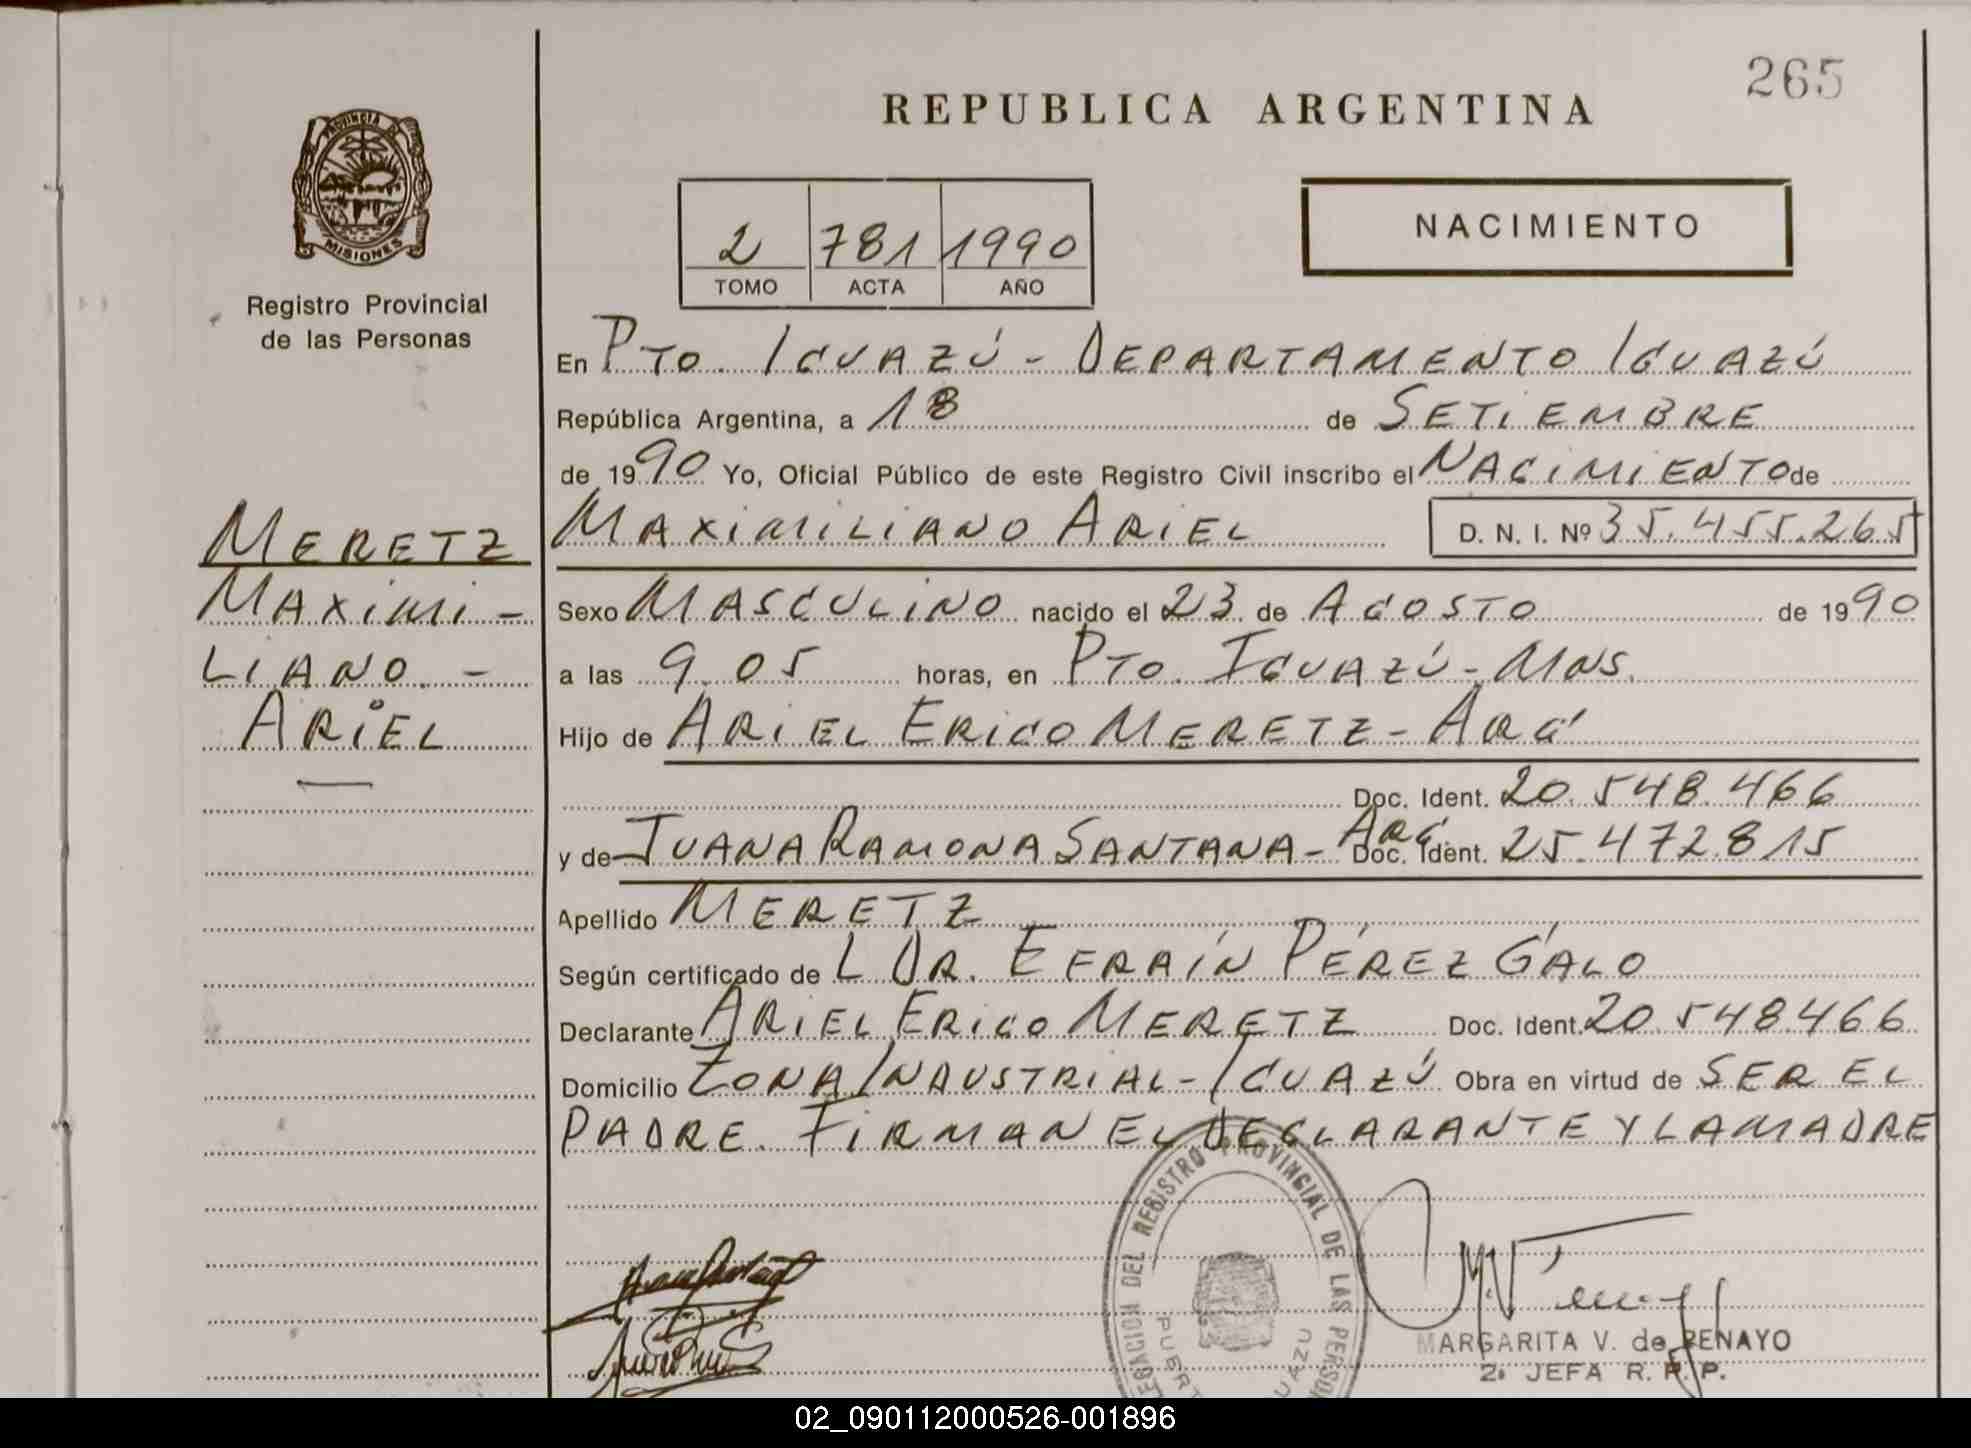 265
REPUBLICA ARGENTINA
PROVINCIA DE
MISIONES
Registro Provincial
de las Personas
2 781 1990
TOMO ACTA AÑO
NACIMIENTO
En PTO. IGUAZÚ - DEPARTAMENTO IGUAZÚ
República Argentina, a 18 de SETIEMBRE
de 1990 Yo, Oficial Público de este Registro Civil inscribo el NACIMIENTO de
MAXIMILIANO ARIEL D. N. I. Nº 35.455.265
MERETZ
MAXIMI-
LIANO. -
ARIEL
Sexo MASCULINO nacido el 23 de AGOSTO de 1990
a las 9.05 horas, en PTO. IGUAZÚ - MNS.
Hijo de ARIEL ERICO MERETZ - ARG.
Doc. Ident. 20.548.466
y de JUANA RAMONA SANTANA - ARG. Doc. Ident. 25.472.815
Apellido MERETZ
Según certificado de L DR. EFRAÍN PÉREZ GALO
Declarante ARIEL ERICO MERETZ Doc. Ident. 20.548.466
Domicilio ZONA INDUSTRIAL - IGUAZÚ Obra en virtud de SER EL
PADRE. FIRMAN EL DECLARANTE Y LA MADRE
DEL REGISTRO PROVINCIAL DE LAS
MARGARITA V. de BENAYO
2ª JEFA R. P. P.
02_090112000526-001896